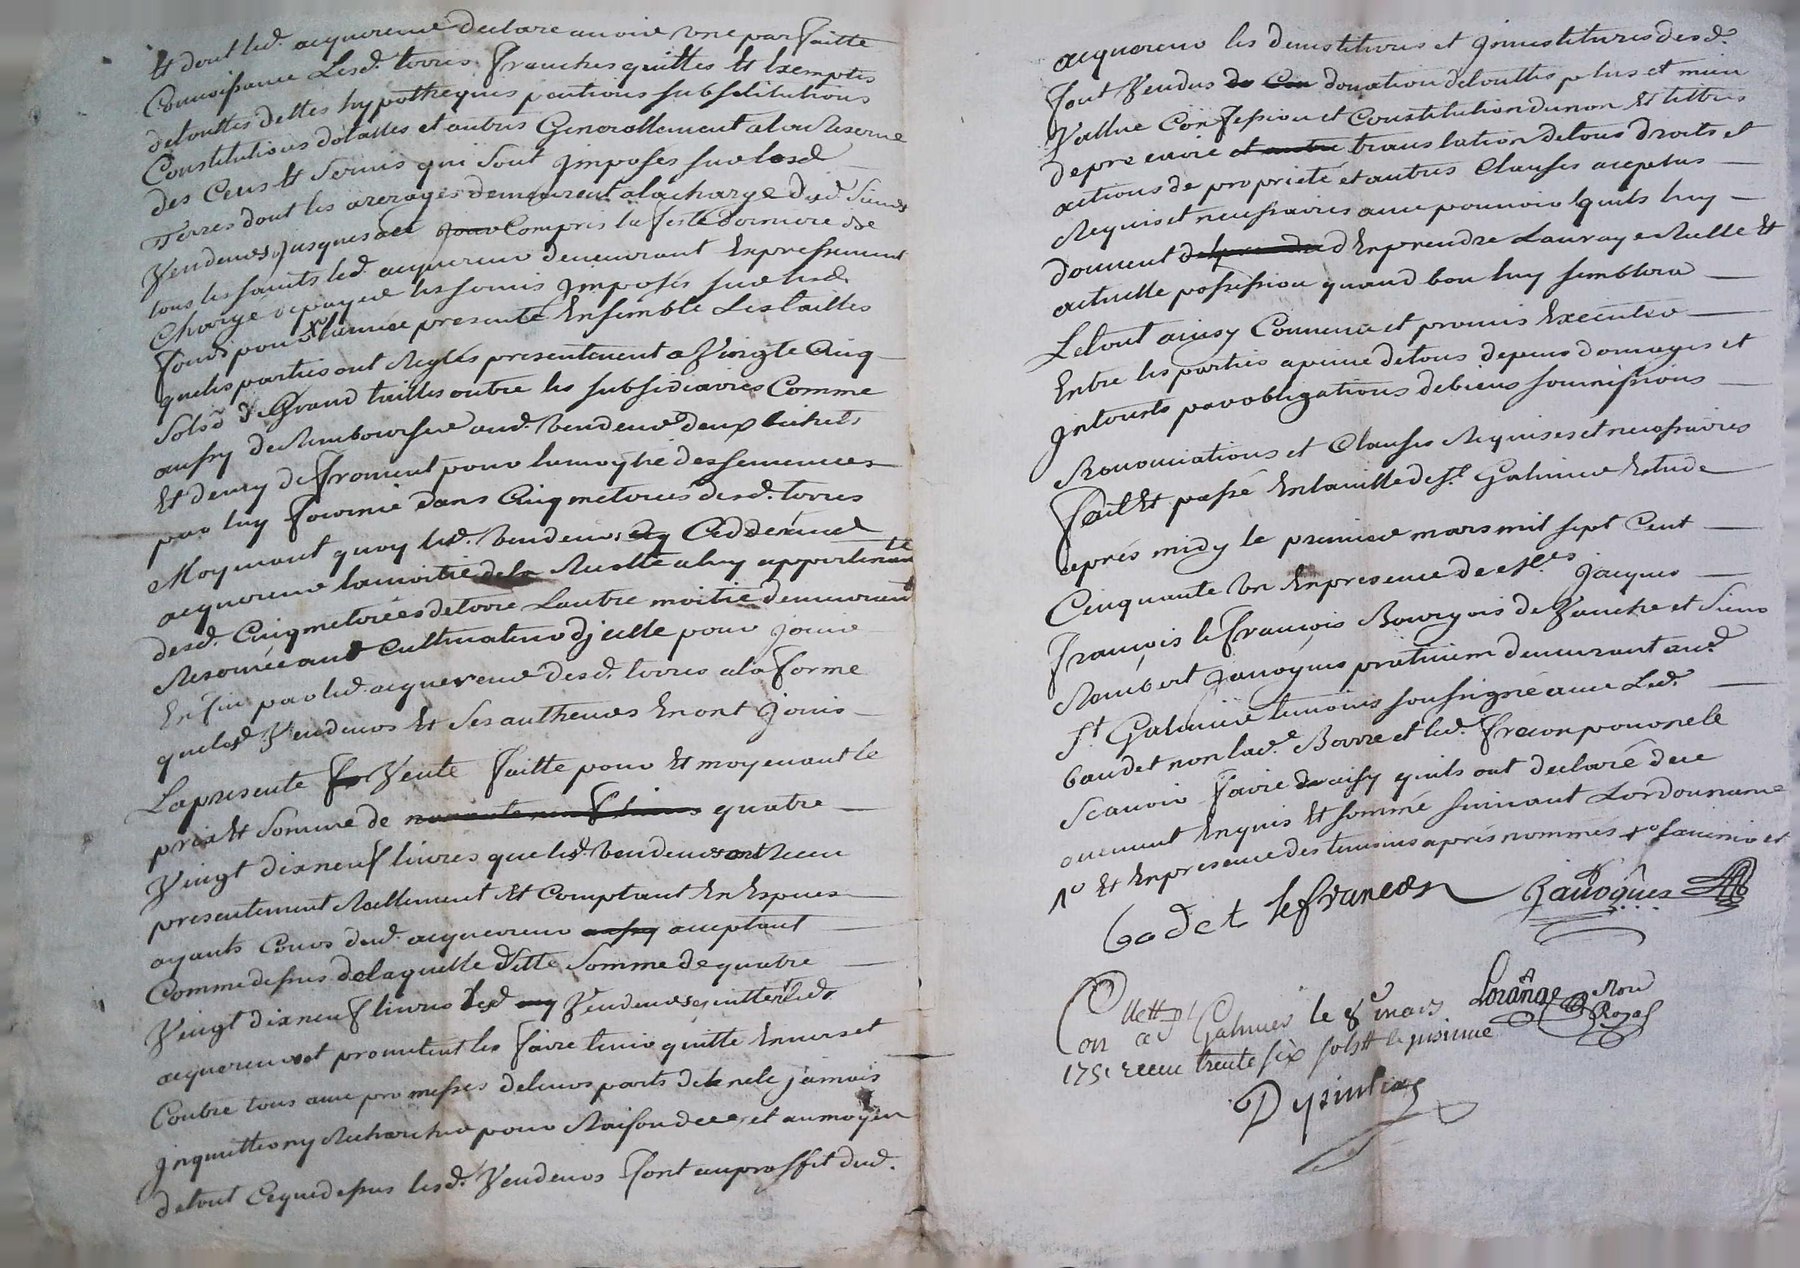 Et dont led. acquereur declare avoir une parfaitte
Connoissance Lesd. terres franches quittes Et Exemptes
de touttes dettes hypotheques pentions substitutions
Constitutions dotalles et autres Generallement a la Reserve
des Cens Et Servis qui Sont Imposés sur lesd.
Terres dont les arerages demeurent a la charge dud. Sieurs
Vendeurs Jusques a ce jour Compris la feste Derniere de
tous les saints led. acquereur demeurant Expressement
Chargé de payer les servis Imposés sur lesd.
fond pour l'année presente Ensemble Les tailles
que les parties ont Reglés presentement a Vingt Cinq
Sols d Grand tailles outre les subsidiaires Comme
aussy de Rembourser aud. Vendeur deux bichets
Et demy de froment pour la moytié des semences
par luy fournie dans Cinq meterées desd. terres
Moyenant quoy led. Vendeur Cedde aud.
acquereur la moitié de la Recolte a luy appartenante
desd. Cinq meterées de terre Lautre moitié demeurant
Reservée au Cultivateur d'jcelle pour jouir
En fin par led. acquereur desd. terres a la forme
que lesd. Vendeurs Et Ses autheurs En ont Joui
La presente Vente faitte pour Et moyenant le
prix Et Somme de quatre
Vingt dix neuf livres que lesd. Vendeurs ont Receu
presentement Reellement Et Comptant En Especes
ayants Cours dud. acquereur aussy acceptant
Comme dessus de laquelle ditte Somme de quatre
Vingt dix neuf livres lesd. Vendeurs quittent led.
acquereur et promettent les faire tenir quitte Envers et
Contre tous avec promesses de leurs parts de ne le jamais
Inquietter ny Rechercher pour Raison de ce, et au moyen
de tout Ce que dessus lesd. Vendeurs font au proffit dud.
acquereur les devestitures et Jnvestitures desd.
font Vendus donation de touttes plus et mieu
Vallue Confession et Constitution du nom Et tittres
de precaire et autre translation de tous droits et
actions de propriété et autres Clauses acceptees
Requis et necessaires avec pouvoir quils luy
donnent d'En prendre La vraye Reelle Et
actuelle possession quand bon luy semblera
Le tout ainsy Convenu et promis Executer
Entre les parties a peine de tous depens domages et
Jnterests par obligations de biens soumissions
Renonciations et Clauses Requises et necessaires
fait Et passé En la ville de St. Galmier Etude
après midy le premier mars mil sept Cent
Cinquante Un En presence de Jacques
françois le françois Bourgeois de et Sieur
Rambert Javogues praticien demeurant aud.
St. Galmier temoins soussigné avec Led.
Gaudet non lad. et led. frecon pour ne le
Scavoir faire de aisy quils ont declaré de ce
ourement Enquis Et sommé suivant Lordonnance
Et En presence des temoins après nommés
Godet lefrancois Javogues
Collatt Lorânge Nore
Con a St Galmier le 8e mars Royal
1751 receu trente six sols